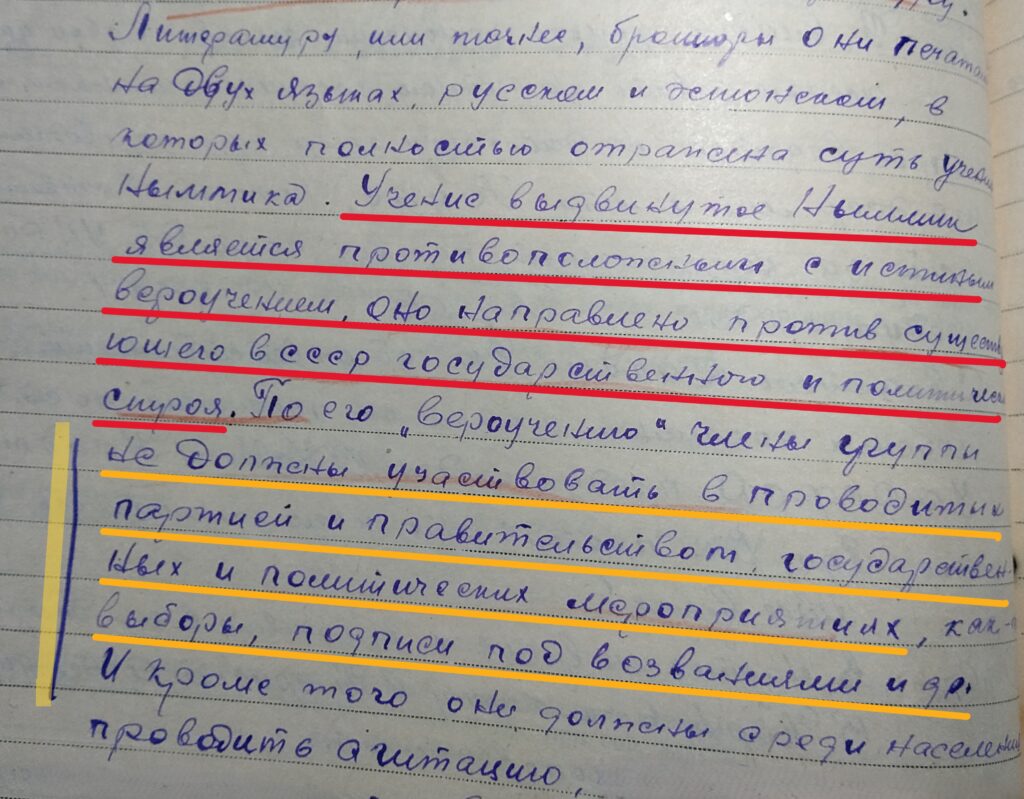 Литературу, или точнее, брошюры они печата
на двух языках, русском и эстонском, в
которых полностью отражена суть учени
Ныммика. Учение выдвинутое Ныммик
является противоположным с истиным
вероучением, оно направлено против сущест
ющего в СССР государственного и политическ
строя. По его „вероучению" члены группы
не должны участвовать в проводимых
партией и правительством, государствен-
ных и политических мероприятиях, как-
выборы, подписи под возваниями и др.
И кроме того они должны среди населени
проводить агитацию,